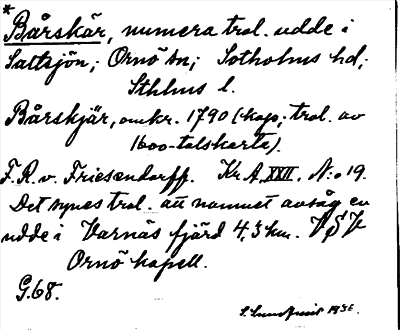 *
Bårskär, numera trol. udde i
Saltsjön; Ornö sn; Sotholms hd;
Sthlms l.
Bårskjär, omkr. 1790 (kop. trol. av
1600-talskarta).
F. R. v. Friesendorff. Kr. A. XXII. N:o 19.
Det synes trol. att namnet avsåg en
udde i Varnäs fjärd 4,3 km. VSV
Ornö kapell.
G. 68.
S. 1936.